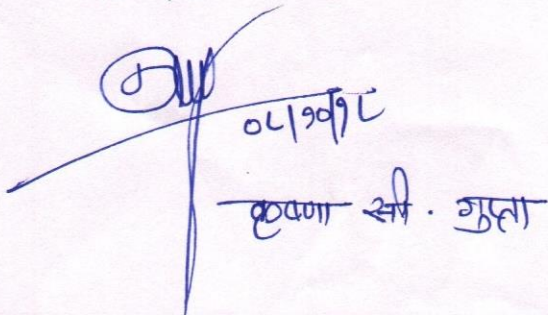 ०८/१०/१८
कृष्णा सी. गुप्ता